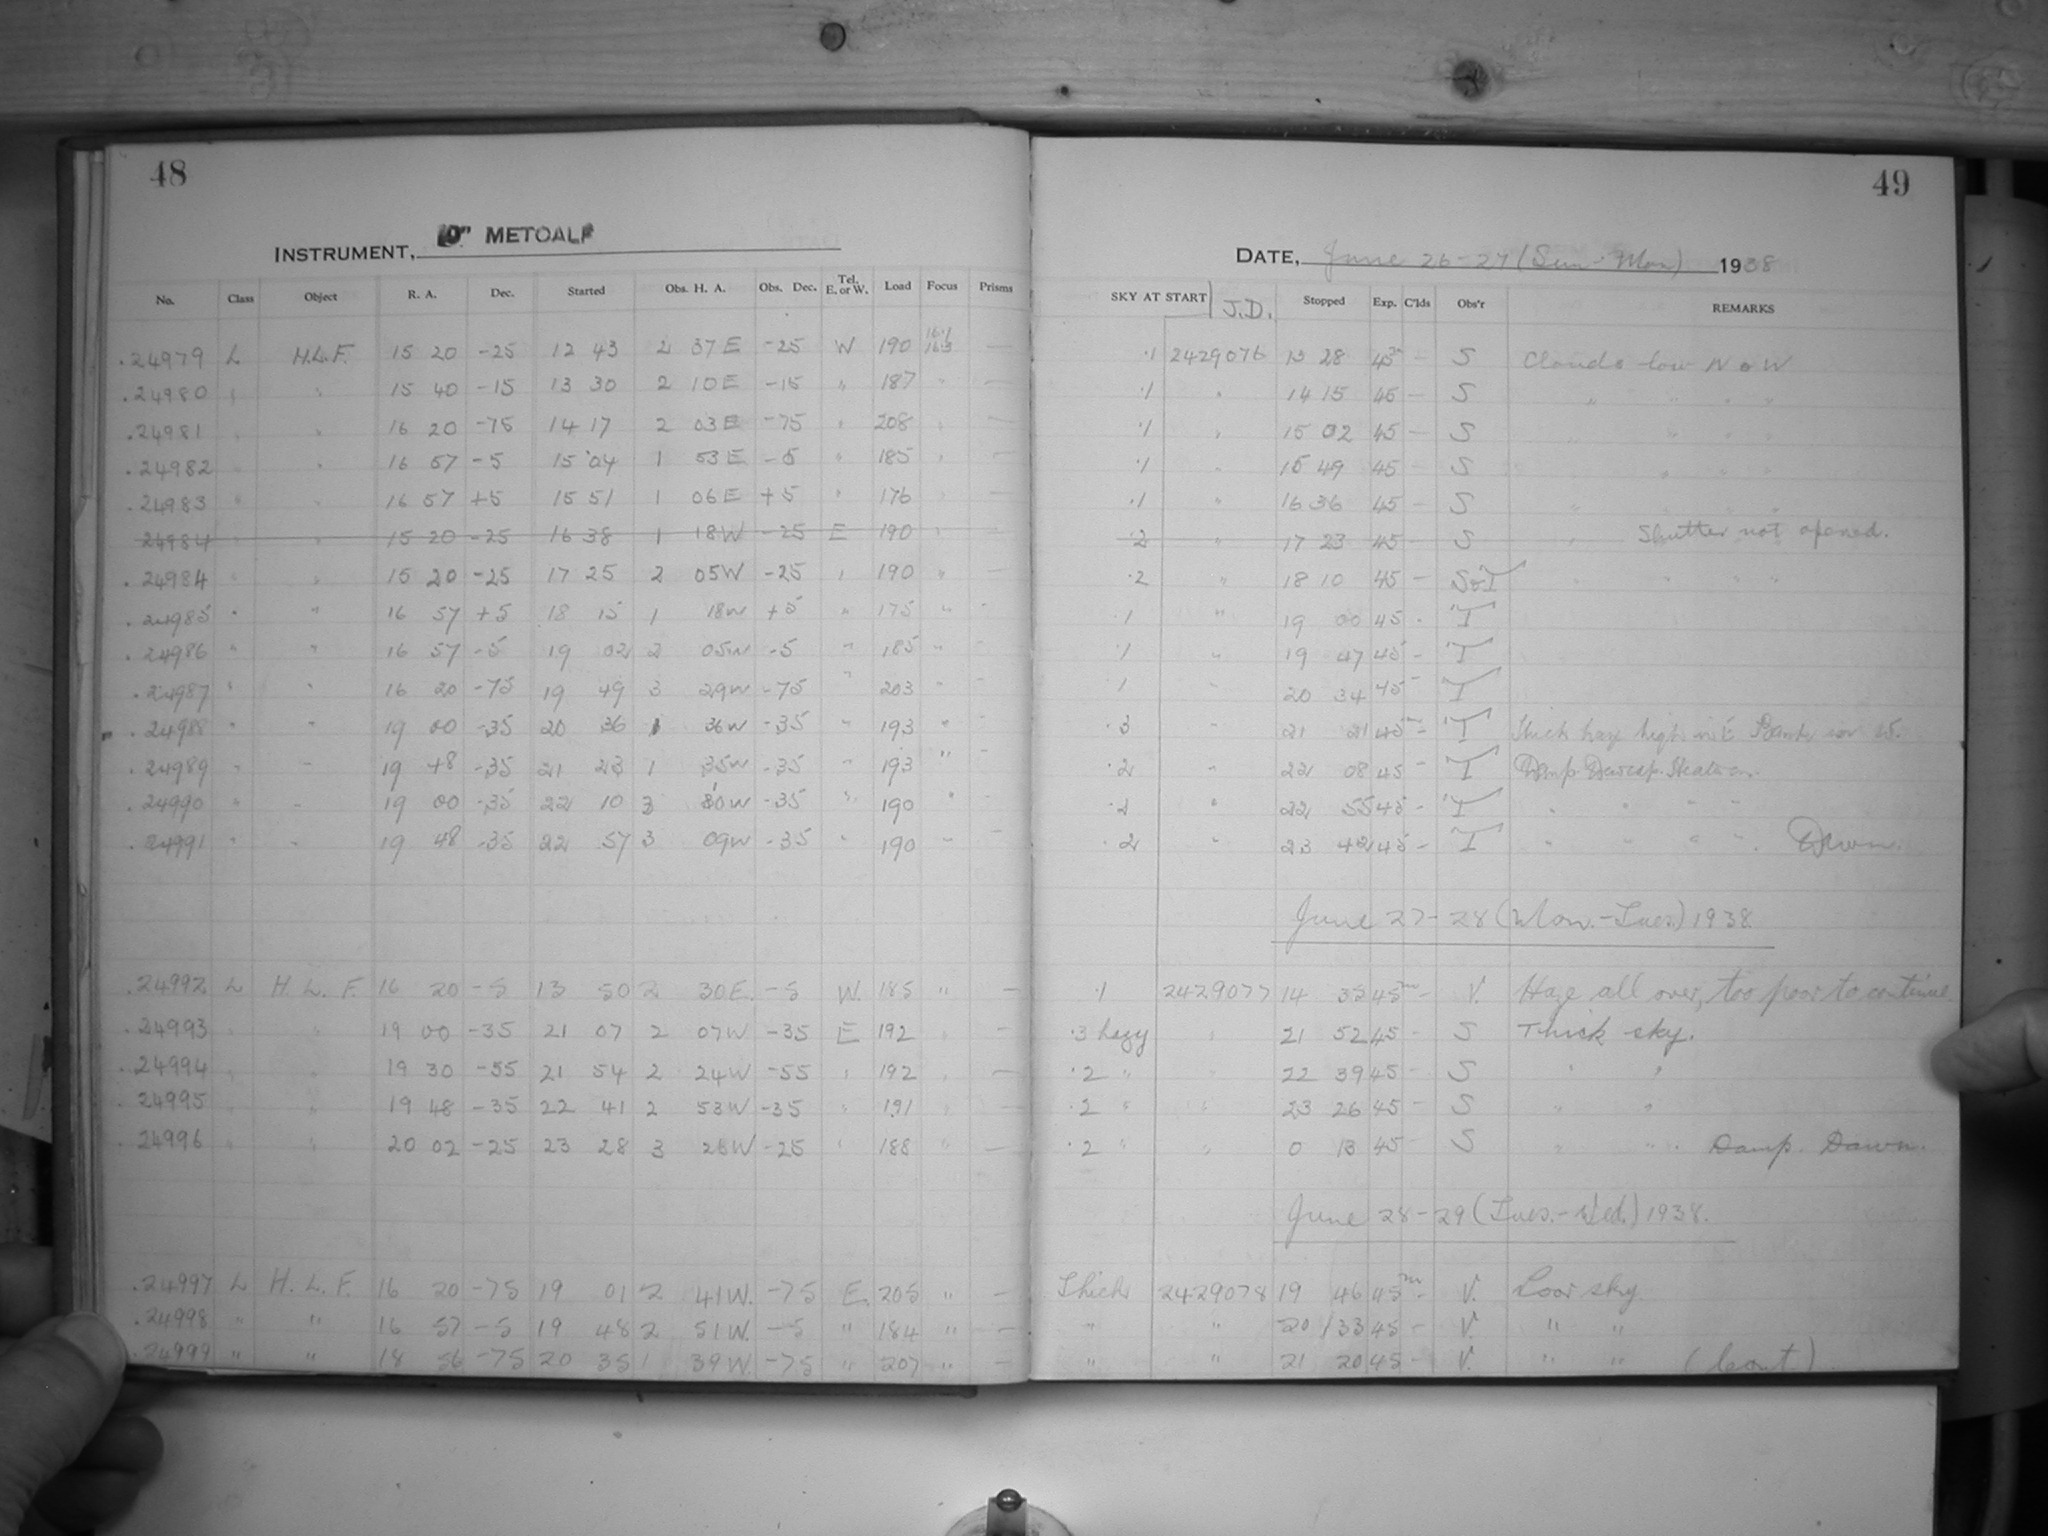 48
INSTRUMENT, 10" METCALF
No. Class Object R. A. Dec. Started Obs. H. A. Obs. Dec. Tel. E. or W. Load Focus Prisms
.24979 L H.L.F. 15 20 -25 12 43 2 37 E -25 W 190 16.1 16.3 —
.24980 " " 15 40 -15 13 30 2 10 E -15 " 187 " —
.24981 " " 16 20 -75 14 17 2 03 E -75 " 208 " —
.24982 " " 16 57 -5 15 04 1 53 E -5 " 185 " —
.24983 " " 16 57 +5 15 51 1 06 E +5 " 176 " —
24984 " " 15 20 -25 16 38 1 18 W -25 E 190 " —
.24984 " " 15 20 -25 17 25 2 05 W -25 " 190 " —
.24985 " " 16 57 +5 18 15 1 18 W +5 " 175 " -
.24986 " " 16 57 -5 19 02 2 05 W -5 " 185 " -
.24987 " " 16 20 -75 19 49 3 29 W -75 " 203 " -
.24988 " " 19 00 -35 20 36 1 36 W -35 " 193 " -
.24989 " " 19 48 -35 21 23 1 35 W -35 " 193 " -
.24990 " " 19 00 -35 22 10 3 10 W -35 " 190 " -
.24991 " " 19 48 -35 22 57 3 09 W -35 " 190 " -
.24992 L H. L. F. 16 20 -5 13 50 2 30 E. -5 W. 185 " —
.24993 " " 19 00 -35 21 07 2 07 W -35 E 192 " —
.24994 " " 19 30 -55 21 54 2 24 W -55 " 192 " —
.24995 " " 19 48 -35 22 41 2 53 W -35 " 191 " —
.24996 " " 20 02 -25 23 28 3 26 W -25 " 188 " —
.24997 L H. L. F. 16 20 -75 19 01 2 41 W. -75 E. 205 " —
.24998 " " 16 57 -5 19 48 2 51 W. -5 " 184 " —
.24999 " " 18 56 -75 20 35 1 39 W. -75 " 207 " —
49
DATE, June 26-27 (Sun-Mon) 1938
SKY AT START J.D. Stopped Exp. C'lds Obs'r REMARKS
.1 2429076 13 28 45m — S Clouds low N & W
.1 " 14 15 45 — S " " " "
.1 " 15 02 45 — S " " " "
.1 " 15 49 45 — S " " " "
.1 " 16 36 45 — S " " " "
.2 " 17 23 45 — S " Shutter not opened.
.2 " 18 10 45 — S&T " " " "
.1 " 19 00 45 - T
.1 " 19 47 45 - T
.1 " 20 34 45 - T
.3 " 21 21 45 - T Thick haze high in E Bank in W.
.2 " 22 08 45 - T Damp. Dewcap. Heat on.
.2 " 22 55 45 - T " " " "
.2 " 23 42 45 - T " " " " Dawn.
June 27-28 (Mon.-Tues.) 1938.
.1 2429077 14 35 45m - V. Haze all over, too poor to continue.
.3 hazy " 21 52 45 - S Thick sky.
.2 " " 22 39 45 - S " "
.2 " " 23 26 45 - S " "
.2 " " 0 13 45 - S " " . Damp. Dawn.
June 28-29 (Tues.-Wed.) 1938.
Thick 2429078 19 46 45m - V. Poor sky.
" " 20 33 45 - V. " "
" " 21 20 45 - V. " " (Cont)